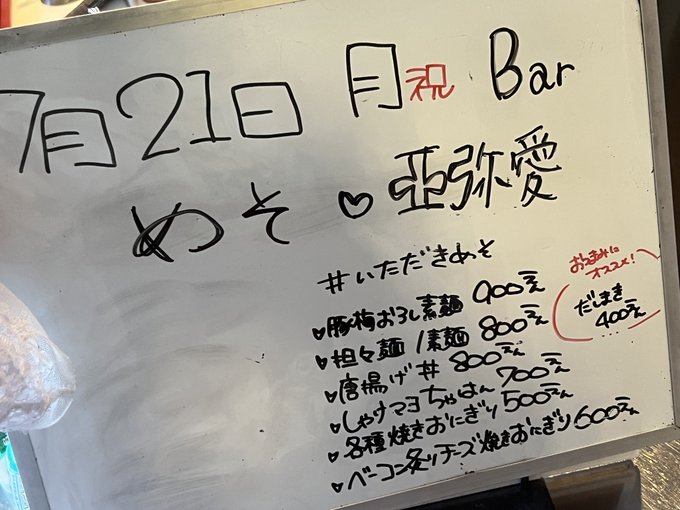 7月21日 月祝 Bar
めそ♡亜弥愛
#いただきめそ
♡豚梅おろし素麺 900えん
♡担々麺/素麺 800えん
♡唐揚げ丼 800えん
♡しゃけマヨちゃはん 700えん
♡各種焼きおにぎり 500えん
♡ベーコン炙りチーズ焼きおにぎり 600えん
おつまみに
オススメ!
だしまき
400えん